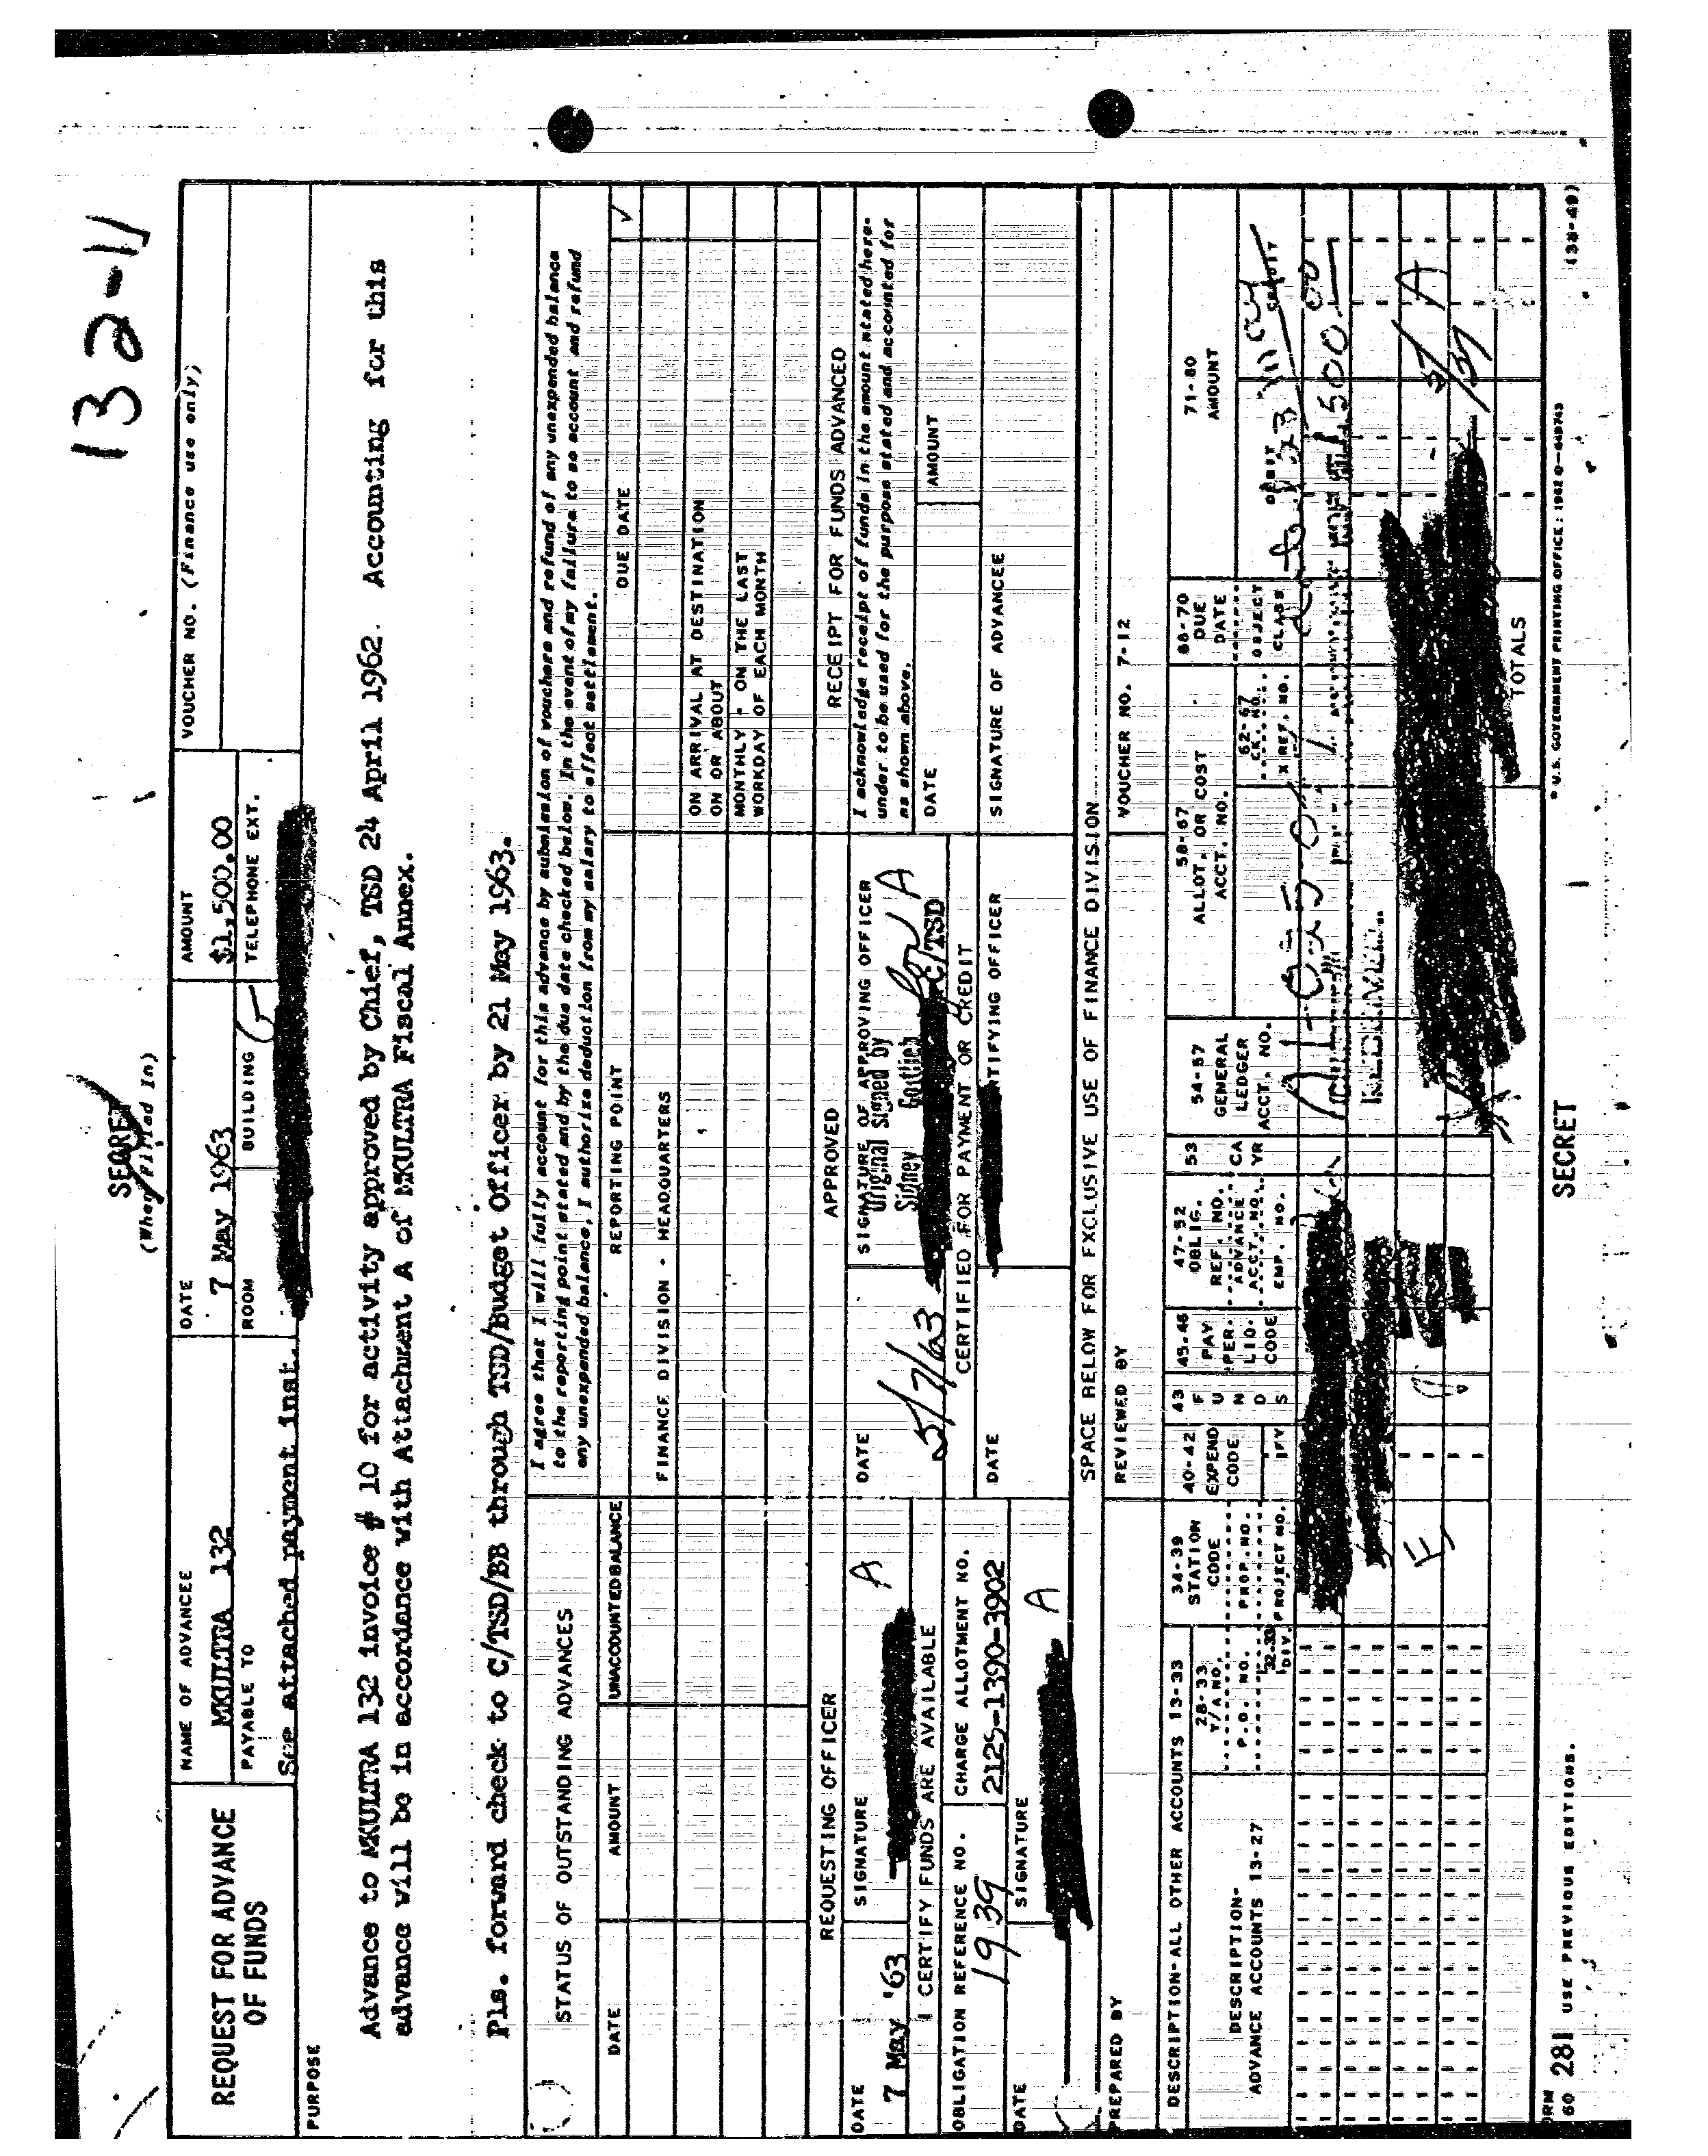 132-11
SECRET
(When Filled In)
REQUEST FOR ADVANCE
OF FUNDS
NAME OF ADVANCEE
MKULTRA 132
DATE
7 May 1963
AMOUNT
$1,500.00
VOUCHER NO. (Finance use only)
PAYABLE TO
See attached payment inst.
ROOM
BUILDING
TELEPHONE EXT.
PURPOSE
Advance to MKULTRA 132 invoice # 10 for activity approved by Chief, TSD 24 April 1962. Accounting for this
advance will be in accordance with Attachment A of MKULTRA Fiscal Annex.
Pls. forward check to C/TSD/BB through TSD/Budget Officer by 21 May 1963.
STATUS OF OUTSTANDING ADVANCES
I agree that I will fully account for this advance by submission of vouchers and refund of any unexpended balance
to the reporting point stated and by the due date checked below. In the event of my failure to so account and refund
any unexpended balance, I authorize deduction from my salary to effect settlement.
DATE
AMOUNT
UNACCOUNTED BALANCE
REPORTING POINT
DUE DATE
✓
FINANCE DIVISION - HEADQUARTERS
ON ARRIVAL AT DESTINATION
ON OR ABOUT
MONTHLY - ON THE LAST
WORKDAY OF EACH MONTH
REQUESTING OFFICER
APPROVED
RECEIPT FOR FUNDS ADVANCED
DATE
7 May '63
SIGNATURE
A
DATE
5/7/63
SIGNATURE OF APPROVING OFFICER
Original Signed by
Sidney Gottlieb
A
C/TSD
I acknowledge receipt of funds in the amount stated here-
under to be used for the purpose stated and accounted for
as shown above.
I CERTIFY FUNDS ARE AVAILABLE
CERTIFIED FOR PAYMENT OR CREDIT
DATE
AMOUNT
OBLIGATION REFERENCE NO.
1939
CHARGE ALLOTMENT NO.
2125-1390-3902
DATE
SIGNATURE
A
DATE
CERTIFYING OFFICER
SIGNATURE OF ADVANCEE
SPACE BELOW FOR EXCLUSIVE USE OF FINANCE DIVISION
PREPARED BY
REVIEWED BY
VOUCHER NO. 7-12
DESCRIPTION-ALL OTHER ACCOUNTS 13-33
DESCRIPTION-
ADVANCE ACCOUNTS 13-27
28-33
T/A NO.
P.O. NO.
32-33
DIV.
34-39
STATION
CODE
PROP. NO.
PROJECT NO.
40-42
EXPEND
CODE
IFY
43
F
U
N
D
S
45-46
PAY
PER.
LIQ.
CODE
47-52
OBLIG.
REF. NO.
ADVANCE
ACCT. NO.
EMP. NO.
53
CA
YR
54-57
GENERAL
LEDGER
ACCT. NO.
58-67
ALLOT. OR COST
ACCT. NO.
62-67
CK. NO.
X REF. NO.
68-70
DUE
DATE
OBJECT
CLASS
71-80
AMOUNT
DEBIT
CREDIT
1500.00
E
A
TOTALS
FORM
60 281 USE PREVIOUS EDITIONS.
SECRET
* U.S. GOVERNMENT PRINTING OFFICE: 1962 O-649743
(38-49)